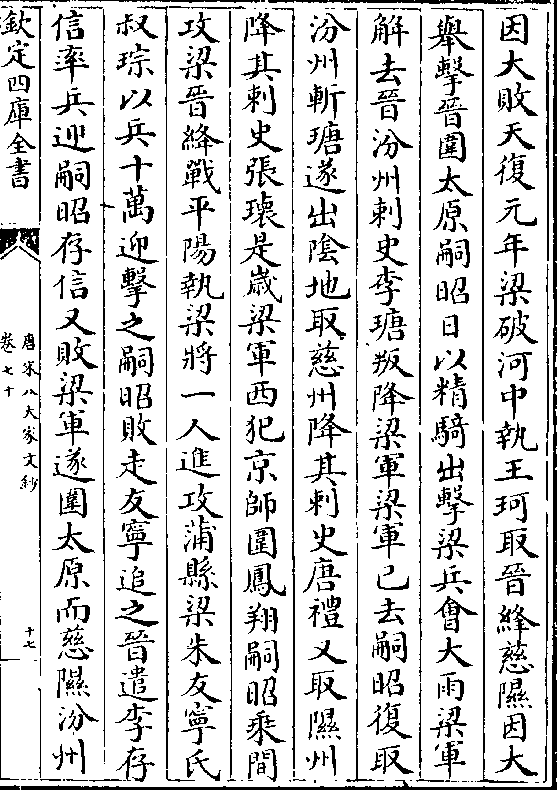 因大敗天復元年梁破河中執王珂取晉絳慈隰因大
舉擊晉圍太原嗣昭日以精騎出擊梁兵會大雨梁軍
解去晉汾州刺史李瑭叛降梁軍梁軍已去嗣昭復取
汾州斬瑭遂出陰地取慈州降其刺史唐禮又取隰州
降其刺史張瓌是歲梁軍西犯京師圍鳳翔嗣昭乘間
攻梁晉絳戰平陽執梁將一人進攻蒲縣梁朱友寧氏
叔琮以兵十萬迎擊之嗣昭敗走友寧追之晉遣李存
信率兵迎嗣昭存信又敗梁軍遂圍太原而慈隰汾州
欽定四庫全書
唐宋八大家文鈔
卷七十
十七